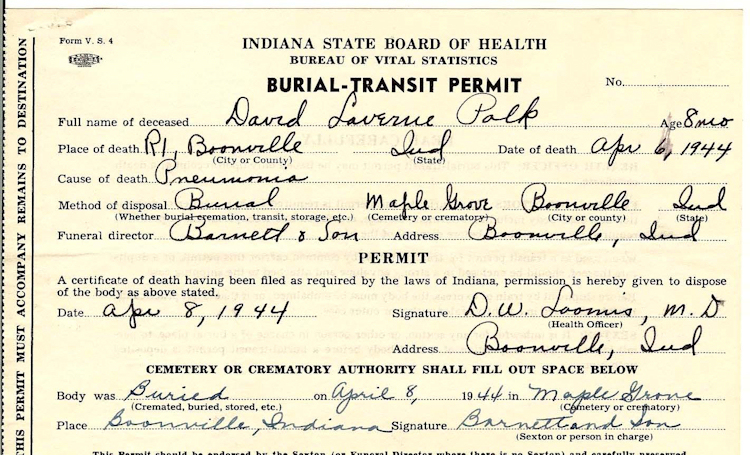 THIS PERMIT MUST ACCOMPANY REMAINS TO DESTINATION
Form V. S. 4
INDIANA STATE BOARD OF HEALTH
BUREAU OF VITAL STATISTICS
BURIAL-TRANSIT PERMIT No.
Full name of deceased David Laverne Polk Age 8 mo
Place of death R1, Boonville Ind Date of death Apr 6, 1944
(City or County) (State)
Cause of death Pneumonia
Method of disposal Burial Maple Grove Boonville Ind
(Whether burial cremation, transit, storage, etc.) (Cemetery or crematory) (City or county) (State)
Funeral director Barnett & Son Address Boonville, Ind
PERMIT
A certificate of death having been filed as required by the laws of Indiana, permission is hereby given to dispose
of the body as above stated.
Date Apr 8, 1944 Signature D. W. Loomis, M. D
(Health Officer)
Address Boonville, Ind
CEMETERY OR CREMATORY AUTHORITY SHALL FILL OUT SPACE BELOW
Body was Buried on April 8, 1944 in Maple Grove
(Cremated, buried, stored, etc.) (Cemetery or crematory)
Place Boonville, Indiana Signature Barnett and Son
(Sexton or person in charge)
This Permit should be endorsed by the Sexton (or Funeral Director where there is no Sexton) and carefully preserved